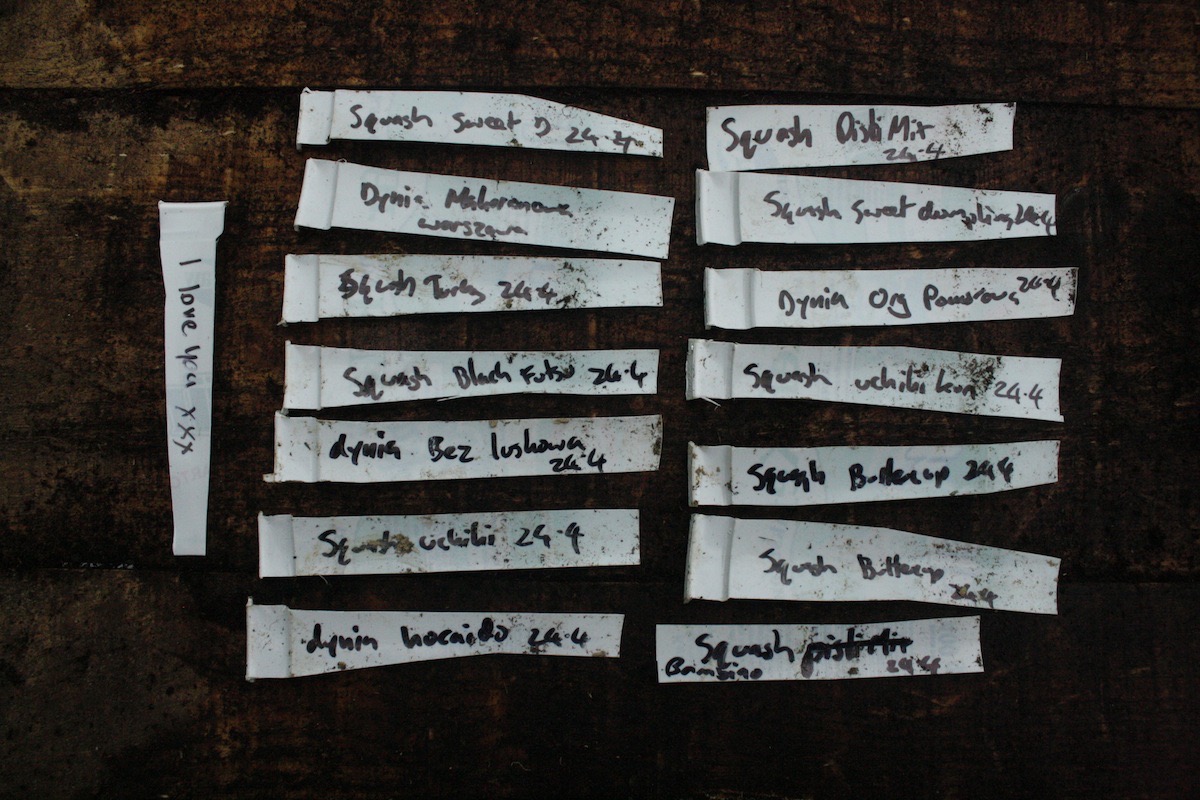 I love you xxx
Squash Sweet D 24-4
Dynia Makaronowa
warszawa
Squash Turks 24-4
Squash Black Futsu 24-4
dynia Bez luskowa
24-4
Squash uchiki 24-4
dynia hocaido 24-4
Squash Mix
24-4
Squash Sweet dumpling 24-4
Dynia Org Pomorova 24-4
Squash uchiki kuri 24-4
Squash Buttercup 24-4
Squash Buttercup
24-4
Squash
Bambino 24-4